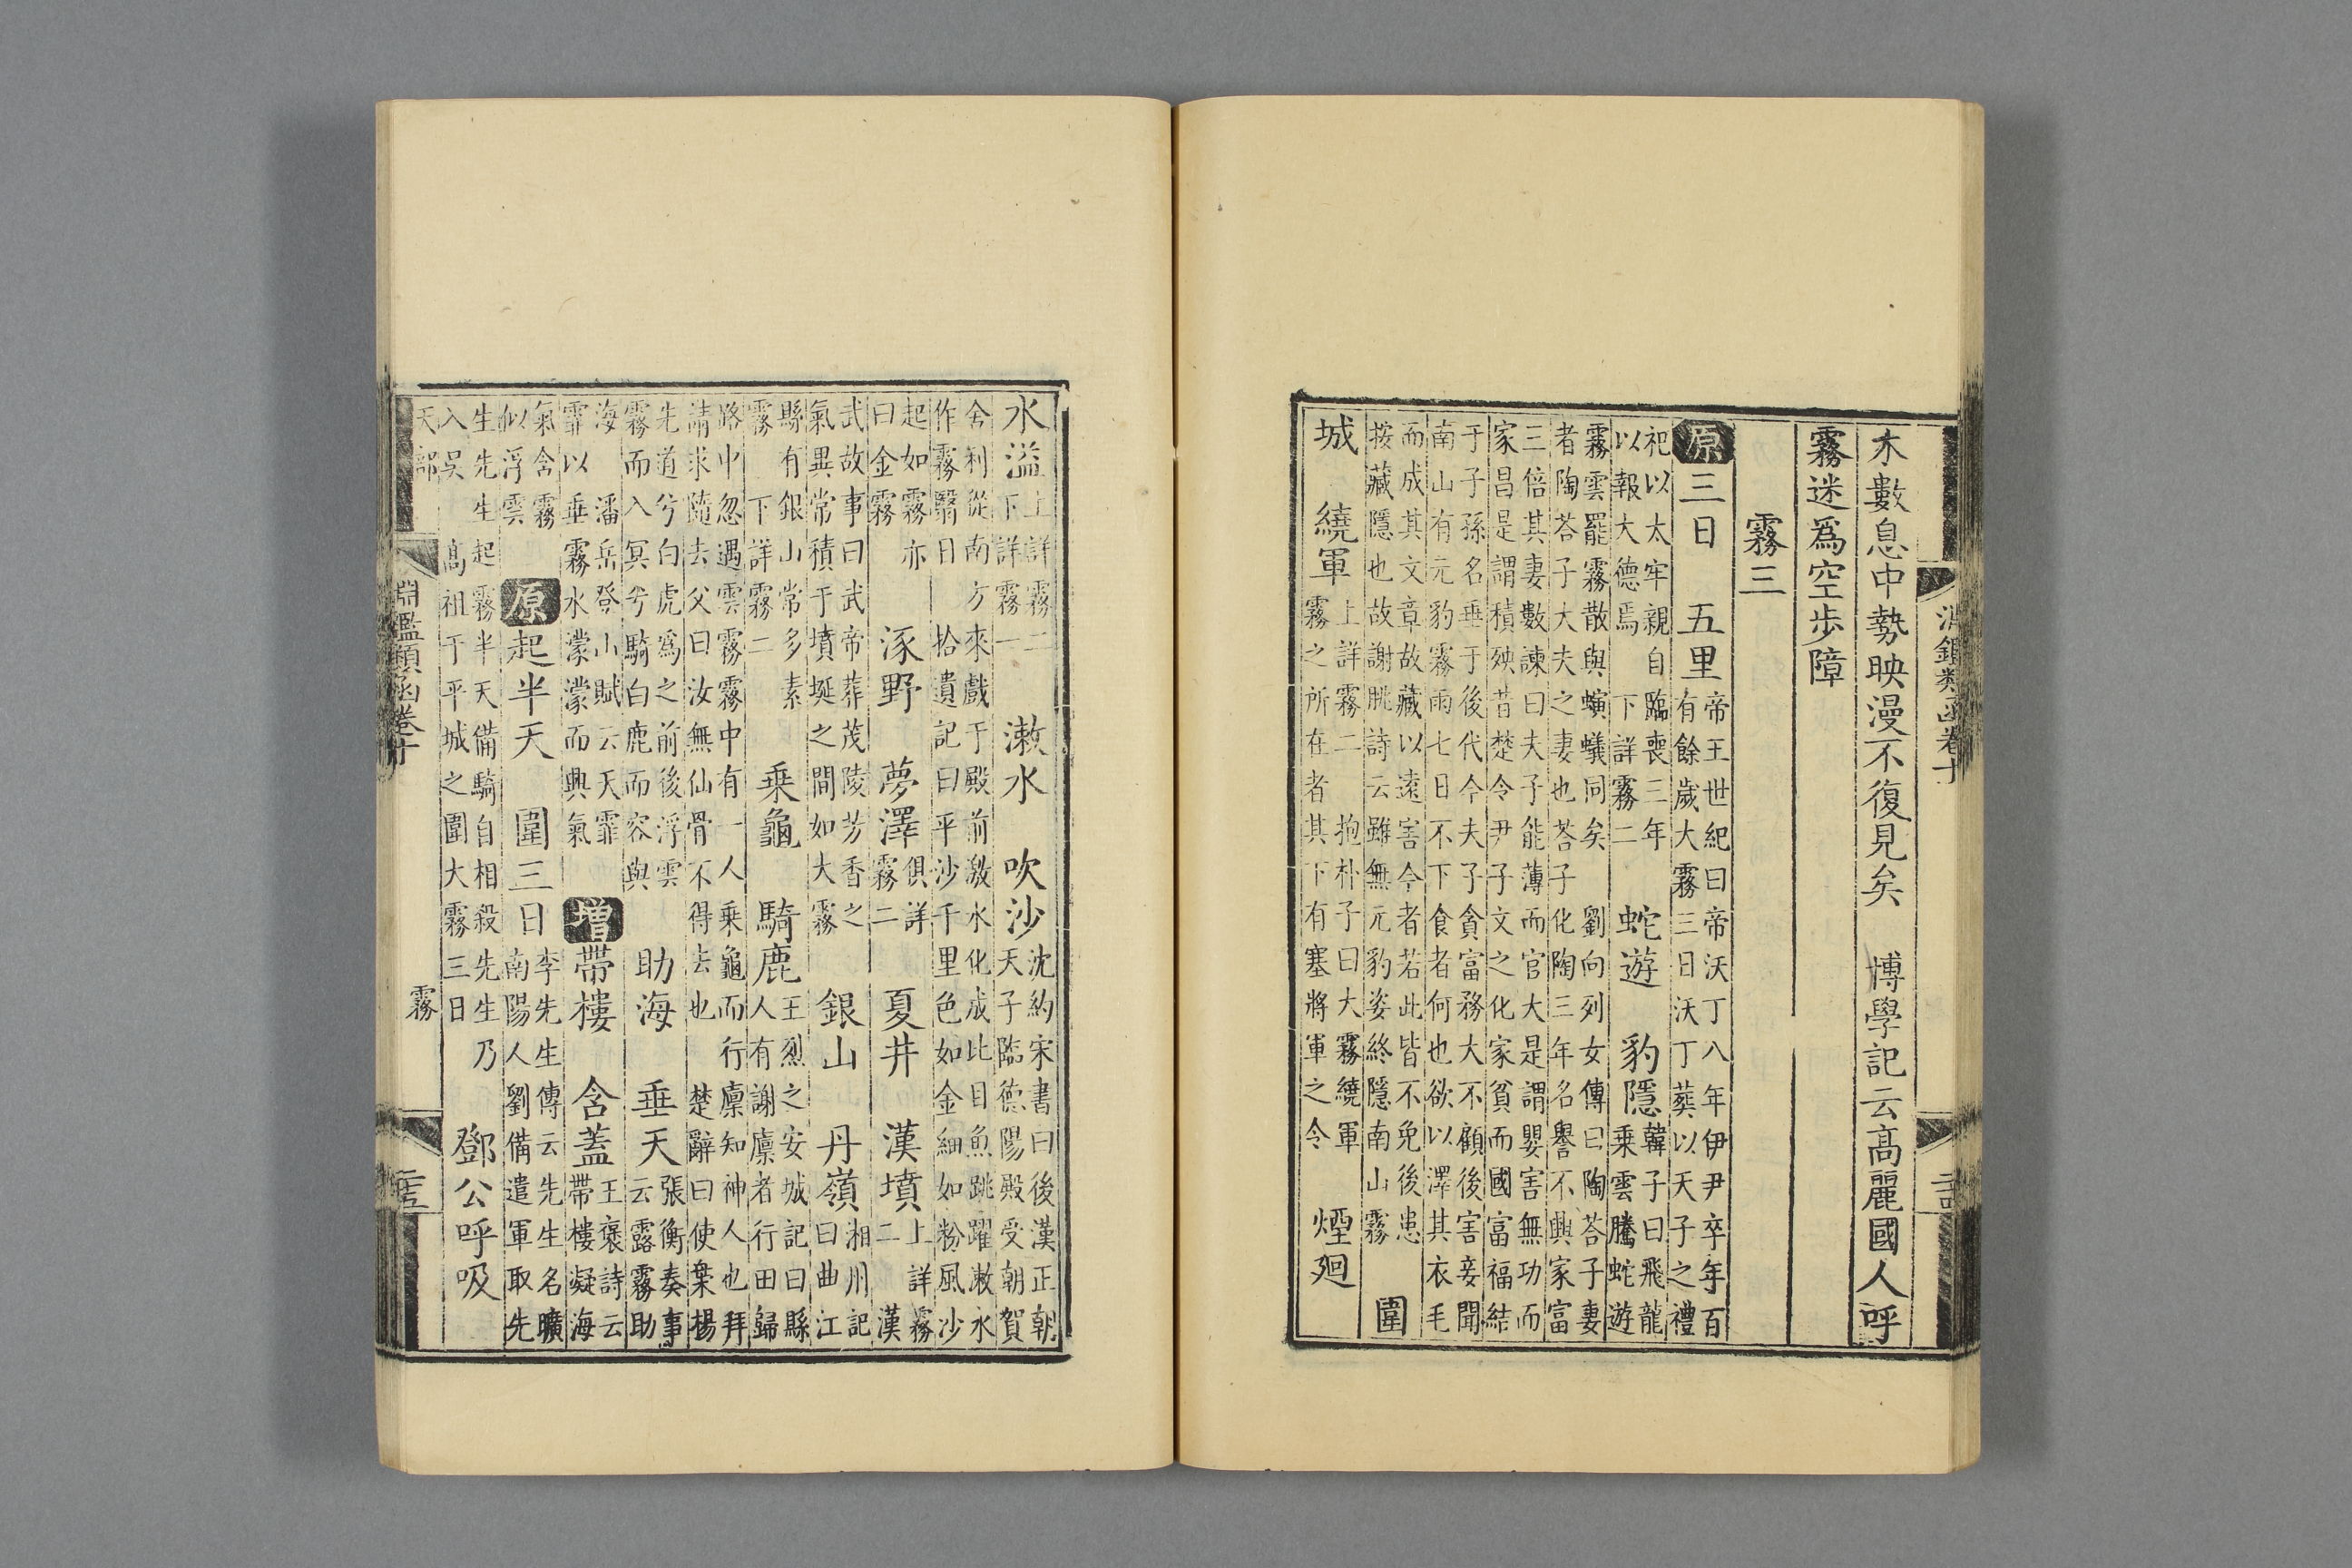 淵鑑類函卷十 二十四
木數息中勢映漫不復見矣 博學記云高麗國人呼
霧迷爲空步障
霧三
原 三日 五里 帝王世紀曰帝沃丁八年伊尹卒年百有餘歲大霧三日沃丁葬以天子之禮
祀以太牢親自臨喪三年以報大德焉 下詳霧二 蛇遊 豹隱 韓子曰飛龍乘雲騰蛇遊
霧雲罷霧散與螾蟻同矣 劉向列女傳曰陶荅子妻者陶荅子大夫之妻也荅子化陶三年名譽不興家富
三倍其妻數諫曰夫子能薄而官大是謂嬰害無功而家昌是謂積殃昔楚令尹子文之化家貧而國富福結
于子孫名垂于後代今夫子貪富務大不顧後害妾聞南山有元豹霧雨七日不下食者何也欲以澤其衣毛
而成其文章故藏以遠害今者若此皆不免後患按藏隱也故謝朓詩云雖無元豹姿終隱南山霧 圍
城 繞軍 上詳霧二 抱朴子曰大霧繞軍霧之所在者其下有塞將軍之令 煙廻
水溢 上詳霧二下詳霧一 漱水 吹沙 沈約宋書曰後漢正朝天子臨德陽殿受朝賀
舍利從南方來戲于殿前激水化成比目魚跳躍漱水作霧翳日 拾遺記曰平沙千里色如金細如粉風沙
起如霧亦曰金霧 涿野 夢澤 俱詳霧二 夏井 漢墳 上詳霧二 漢
武故事曰武帝葬茂陵芳香之氣異常積于墳埏之間如大霧 銀山 丹嶺 湘州記曰曲江
縣有銀山常多素霧 下詳霧二 乗龜 騎鹿 王烈之安城記曰縣人有謝廩者行田歸
路中忽遇雲霧霧中有一人乘龜而行廩知神人也拜請求隨去父曰汝無仙骨不得去也 楚辭曰使梟楊
先道兮白虎爲之前後浮雲霧而入冥兮騎白鹿而容與 助海 垂天 張衡奏事云露霧助
海 潘岳登山賦云天霏霏以垂霧水濛濛而興氣 增 帶樓 含蓋 王褒詩云帶樓凝海
氣含霧似浮雲 原 起半天 圍三日 李先生傳云先生名曠南陽人劉備遣軍取先
生先生起霧半天備騎自相殺先生乃入吳 高祖于平城之圍大霧三日 鄧公呼吸
天部 淵鑑類函卷十 霧 二十五